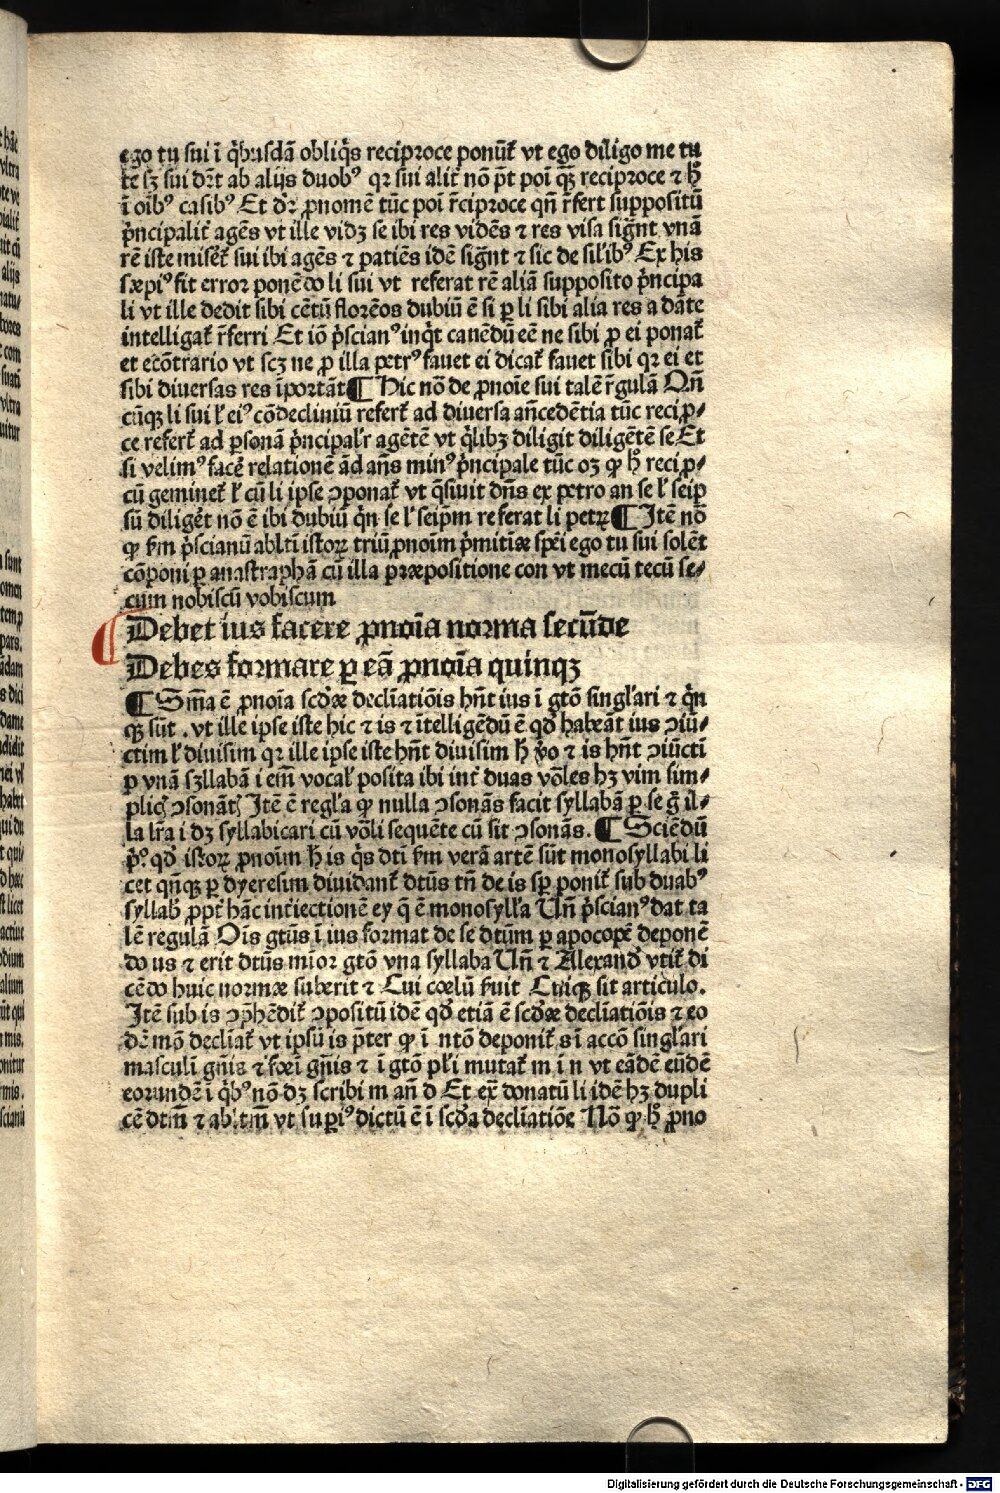 ego tu sui ī q̇busdā obliq̇s reciproce ponūt̄ vt ego diligo me tu
te sꝫ sui dr̄t ab alijs duobꝰ qꝛ sui alit̄ nō pn̄t poi qꝫ reciproce ⁊ h̄
ī oīb⁹ casib⁹ Et dr̄ ꝓnomē tūc poi r̄ciproce qn̄ r̄fert suppositū
ṗncipalit̄ agēs vt ille vidꝫ se ibi res vidēs ⁊ res visa sign̄t vnā
rē iste miseret̄ sui ibi agēs ⁊ patiēs idē sign̄t ⁊ sic de sil'ib⁹ Ex his
sæpi⁹ fit error ponēdo li sui vt referat rē aliā supposito ṗncipa
li vt ille dedit sibi cētū florēos dubiū ē si ꝑ li sibi alia res a dāte
intelligat̄ r̄ferri Et iō ṗscian⁹ inq̇t cauēdū eē ne sibi ꝓ ei ponat̄
et ecōtrario vt scꝫ ne ꝓ illa petr⁹ fauet ei dicat̄ fauet sibi qꝛ ei et
sibi diuersas res īportāt ¶ Hic nō de ꝓnoīe sui talē r̄gulā Qn̄
cūqꝫ li sui ł ei⁹ cōdecliniū refert̄ ad diuersa an̄cedētia tūc recipro⸗
ce refert̄ ad ꝑsonā ṗncipal'r agētē vt q̇libꝫ diligit diligētē se Et
si velim⁹ facē relationē ād an̄s min⁹ ṗncipale tūc oꝫ ꝙ h̄ recipro⸗
cū geminet̄ ł cū li ipse ꝯponat̄ vt q̄siuit dn̄s ex petro an se ł seip
sū diliget̄ nō ē ibi dubiū q̇n se ł seip̄m referat li petrꝫ ¶ Itē nō
ꝙ fm̄ ṗscianū ablt̄i istoꝝ triū ꝓnoīm ṗmitiæ sp̄ei ego tu sui solēt
cōponi ꝑ anastraphā cū illa præpositione con vt mecū tecū se⸗
cum nobiscū vobiscum
Debet ius facere ꝓnoīa norma secūde
Debes formare ꝑ eā ꝓnoīa quinqꝫ
¶ Sm̄a ē ꝓnoīa scd̄æ decliatiōis hn̄t ius ī gtō singl'ari ⁊ q̇n
qꝫ sūt . vt ille ipse iste hic ⁊ is ⁊ ītelligēdū ē qd̄ habeāt ius ꝯiū⸗
ctim ł diuisim qꝛ ille ipse iste hn̄t diuisim h̄ v̊o ⁊ is hn̄t ꝯiūcti
ꝑ vnā sꝫllabā i em̄ vocal' posita ibi int̄ duas vōles hꝫ vim sim⸗
plicꝭ ꝯsonātꝭ Itē ē regl'a ꝙ nulla ꝯsonās facit syllabā ꝑ se g̊ il⸗
la lr̄a i dꝫ syllabicari cū vōli sequēte cū sit ꝯsonās. ¶ Sciēdū
ṗ⁰ qd̄ istoꝝ ꝓnoīm h̄ is q̇s dt̄i fm̄ verā artē sūt monosyllabi li
cet qn̄qꝫ ꝑ dyeresim diuidant̄ dtūs tn̄ de is sp̄ ponit̄ sub duab⁹
syllab̄ ꝓpt̄ hāc int̄iectionē ey q̄ ē monosyll'a Un̄ ṗscian⁹ dat ta
lē regulā Oīs gtūs ī ius format de se dtūm ꝑ apocopē deponē
do us ⁊ erit dtūs mīor gtō vna syllaba Un̄ ⁊ Alexand̄ vtit̄ di
cēdo huic normæ suberit ⁊ Cui cœlū fuit Cuiqꝫ sit articulo.
Itē sub is ꝯp̄hēdit̄ ꝯpositū idē qd̄ etiā ē scd̄æ decliatiōis ⁊ eo
dē mō decliat̄ vt ipsū is p̄ter ꝙ ī ntō deponit̄ s ī accō singl'ari
masculī gn̄is ⁊ foeī gn̄is ⁊ ī gtō pl'i mutat̄ m ī n vt eādē eūdē
eorundē ī q̇b⁹ nō dꝫ scribi m an̄ d Et ex̄ donatū li idē hꝫ dupli
cē dtm̄ ⁊ ablt̄m̄ vt supi⁹ dictū ē ī scd̄a decliatiōe Nō ꝙ h̄ ꝓno
Digitalisierung gefördert durch die Deutsche Forschungsgemeinschaft - DFG